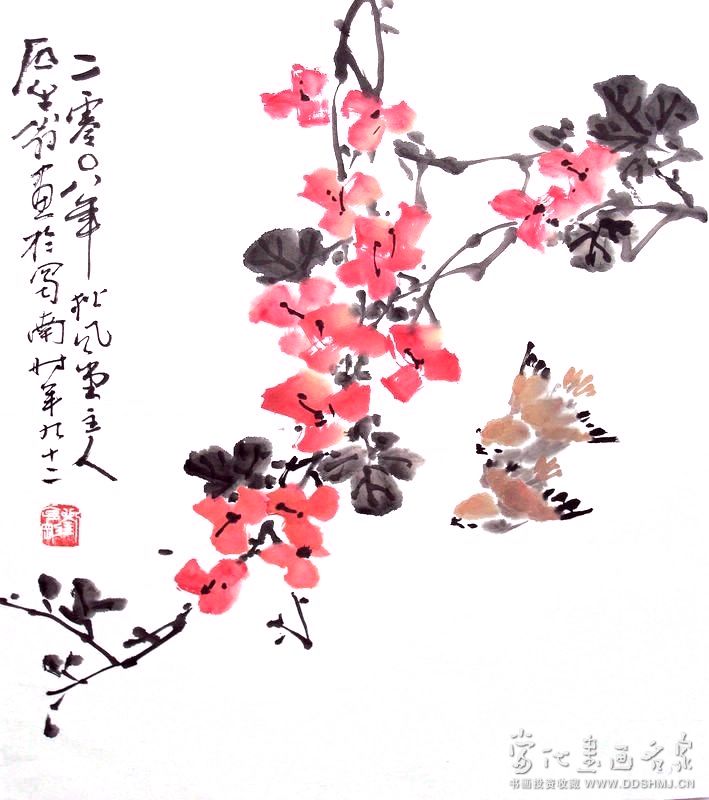 二零〇八年风堂主人
翁画於蜀南时年九十二
当代书画名家
书画投资收藏 WWW.DDSHMJ.CN